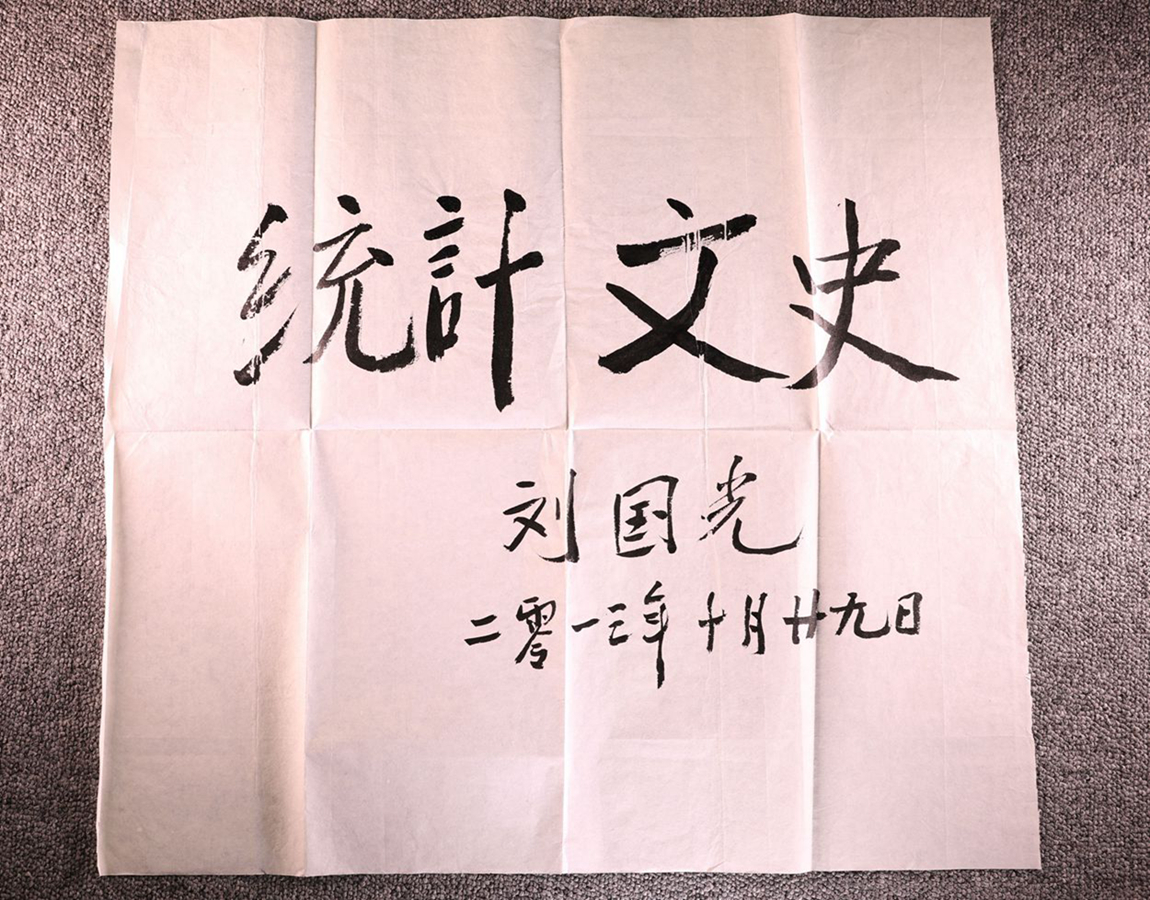 統計文史
刘国光
二零一三年十月廿九日